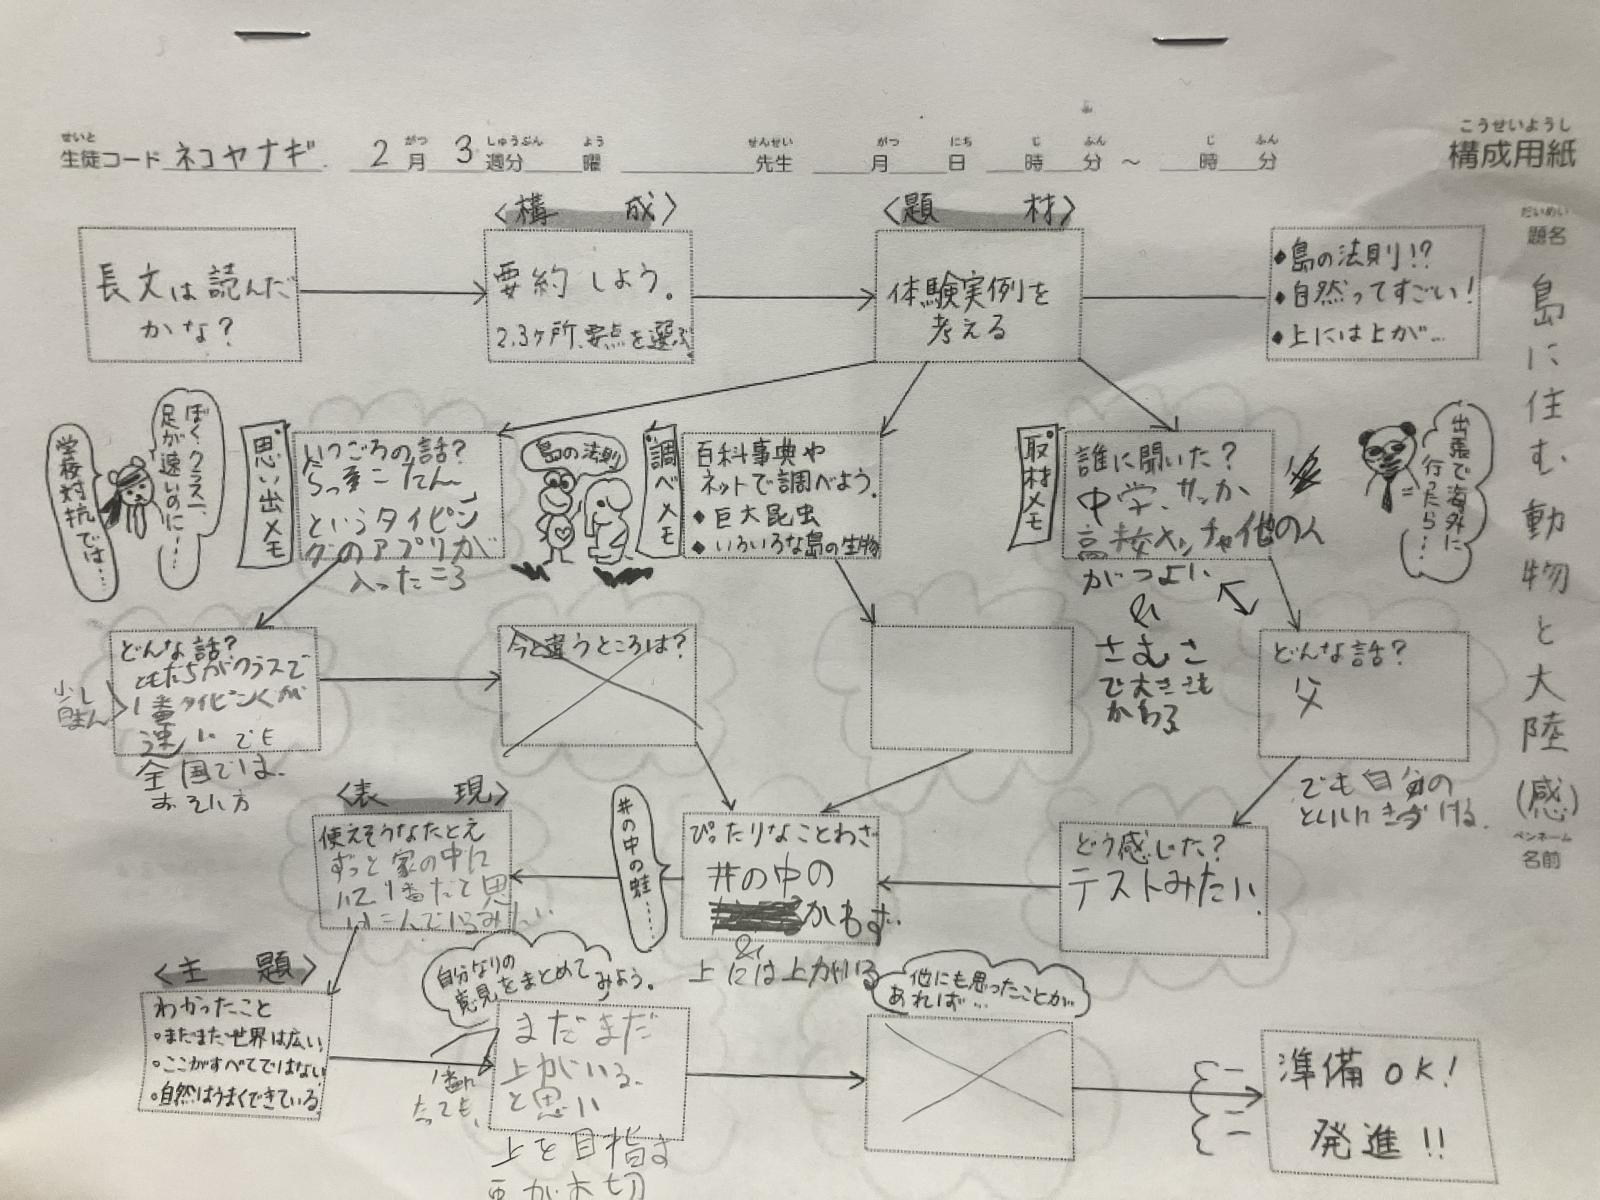 せいと がつ しゅうぶん よう せんせい がつ にち じ ふん じ ふん
生徒コード ネコヤナギ 2月 3週分 曜 先生 月 日 時 分 ～ 時 分
こうせいようし
構成用紙
だいめい
題名
島に住む動物と大陸(感)
ペンネーム
名前
長文は読んだ
かな?
〈構 成〉
要約しよう。
2.3ヶ所、要点を選ぶ
〈題 材〉
体験実例を
考える
◆島の法則!?
◆自然ってすごい!
◆上には上が…
学校対抗では…
ぼく、クラス一、
足が速いのに…
思い出メモ
いつごろの話?
というタイピン
グのアプリが
入ったころ
島の法則
調べメモ
百科事典や
ネットで調べよう。
◆巨大昆虫
◆いろいろな島の生物
取材メモ
誰に聞いた?
中学、サッカー
他の人
がつよい
&
さむさ
で大きさも
かわる
出張で海外に
行ったら…
どんな話?
ともだちがクラスで
1番タイピングが
速い でも
全国では、
おそい方
少し
今と違うところは?
どんな話?
父
でも自分の
といいにきづける。
どう感じた?
テストみたい
ぴったりなことわざ
井の中の
かわず
&
上には上がいる
井の中の蛙……
〈表 現〉
使えそうなたとえ
ずっと家の中に
いて1番だと思
いこんでいるみたい
〈主 題〉
わかったこと
・まだまだ世界は広い
・ここがすべてではない
・自然はうまくできている
自分なりの
意見をまとめて
みよう。
1番に
なっても、
まだまだ
上がいる
と思い
上を目指す
事が大切
他にも思ったことが
あれば…
準備OK!
発進!!